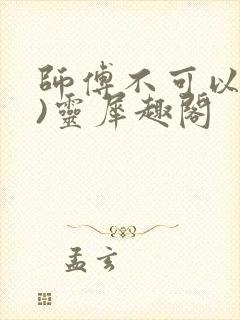 師傅不可以
)靈犀趣閣
孟玄